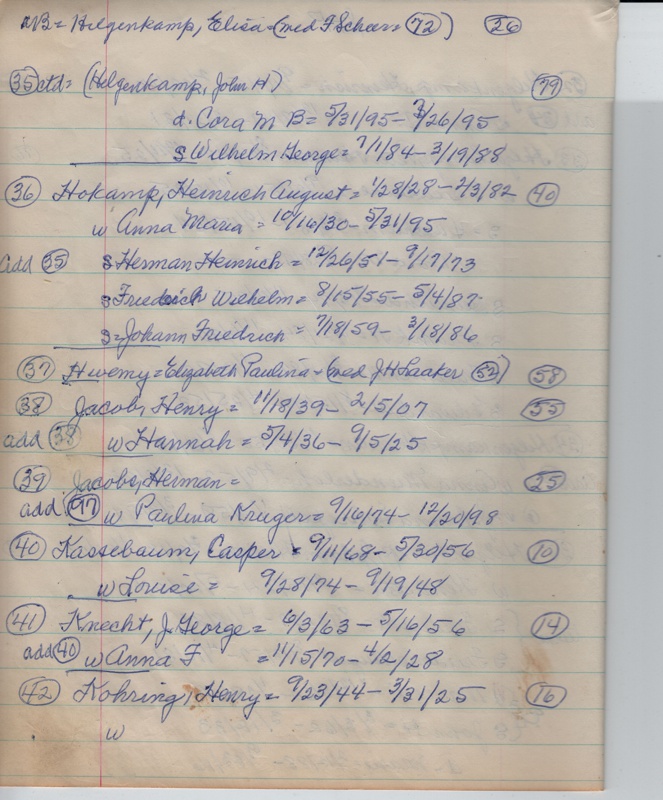 NB= Helgenkamp, Elisa=(med F Scheer= 72) 26
35 ctd= (Helgenkamp, John H) 79
d. Cora M B= 5/31/95- 7/26/95
s Wilhelm George= 7/1/84- 3/19/88
36 Hokamp, Heinrich August= 1/28/28- 2/3/82 40
w Anna Maria= 10/16/30- 5/31/95
add 35 s Herman Heinrich= 12/26/51- 9/17/73
s Friedrich Wilhelm= 8/15/55- 5/4/87
s=Johann Friedrich= 7/18/59- 3/18/86
37 Huemy=Elizabeth Paulina=(med J H Laaker 52) 58
38 Jacobs, Henry= 11/18/39- 2/5/07 55
add 38 w Hannah= 5/4/36- 9/5/25
39 Jacobs, Herman= 25
add w Paulina Kruger= 9/16/74- 12/20/98
40 Kassebaum, Casper= 9/11/68- 5/30/56 10
w Louise= 9/28/74- 9/19/48
41 Knecht, J. George= 6/3/63- 5/16/56 14
add 40 w Anna F = 11/15/70- 4/2/28
42 Kohring, Henry= 9/23/44- 3/31/25 16
w